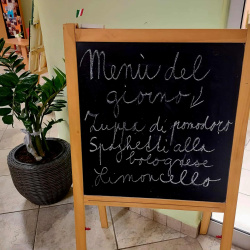 Menù del
giorno
Zuppa di pomodoro
Spaghetti alla
bolognese
Limoncello